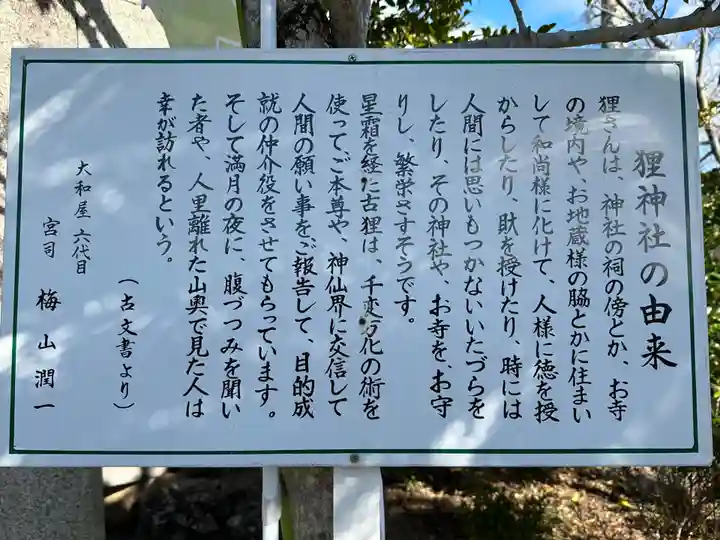 狸神社の由来
狸さんは、神社の祠の傍とか、お寺
の境内や、お地蔵様の脇とかに住まい
して和尚様に化けて、人様に徳を授
からしたり、財を授けたり、時には
人間には思いもつかないいたづらを
したり、その神社や、お寺を、お守
りし、繁栄さすそうです。
星霜を経た古狸は、千変万化の術を
使って、ご本尊や、神仙界に交信して
人間の願い事をご報告して、目的成
就の仲介役をさせてもらっています。
そして満月の夜に、腹づつみを聞い
た者や、人里離れた山奥で見た人は
幸が訪れるという。
（古文書より）
大和屋 六代目
宮司 梅山潤一